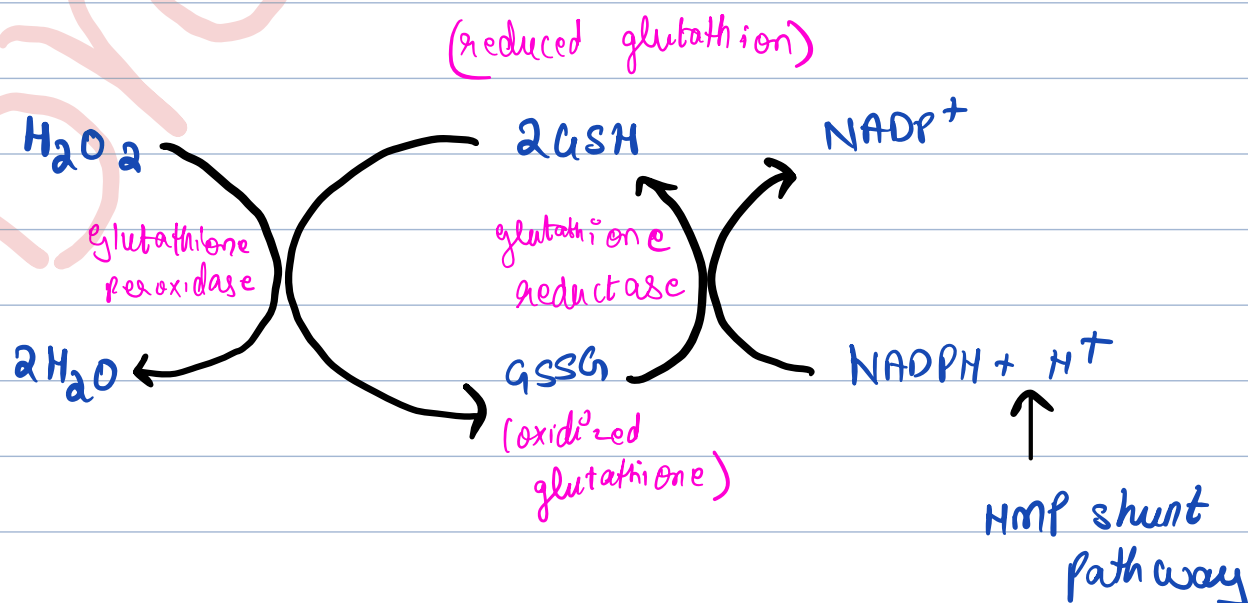 (reduced glutathion)
H2O2 2GSH NADP+
glutathione
peroxidase
glutathione
reductase
2H2O GSSG NADPH + H+
(oxidized
glutathione)
HMP shunt
Pathway